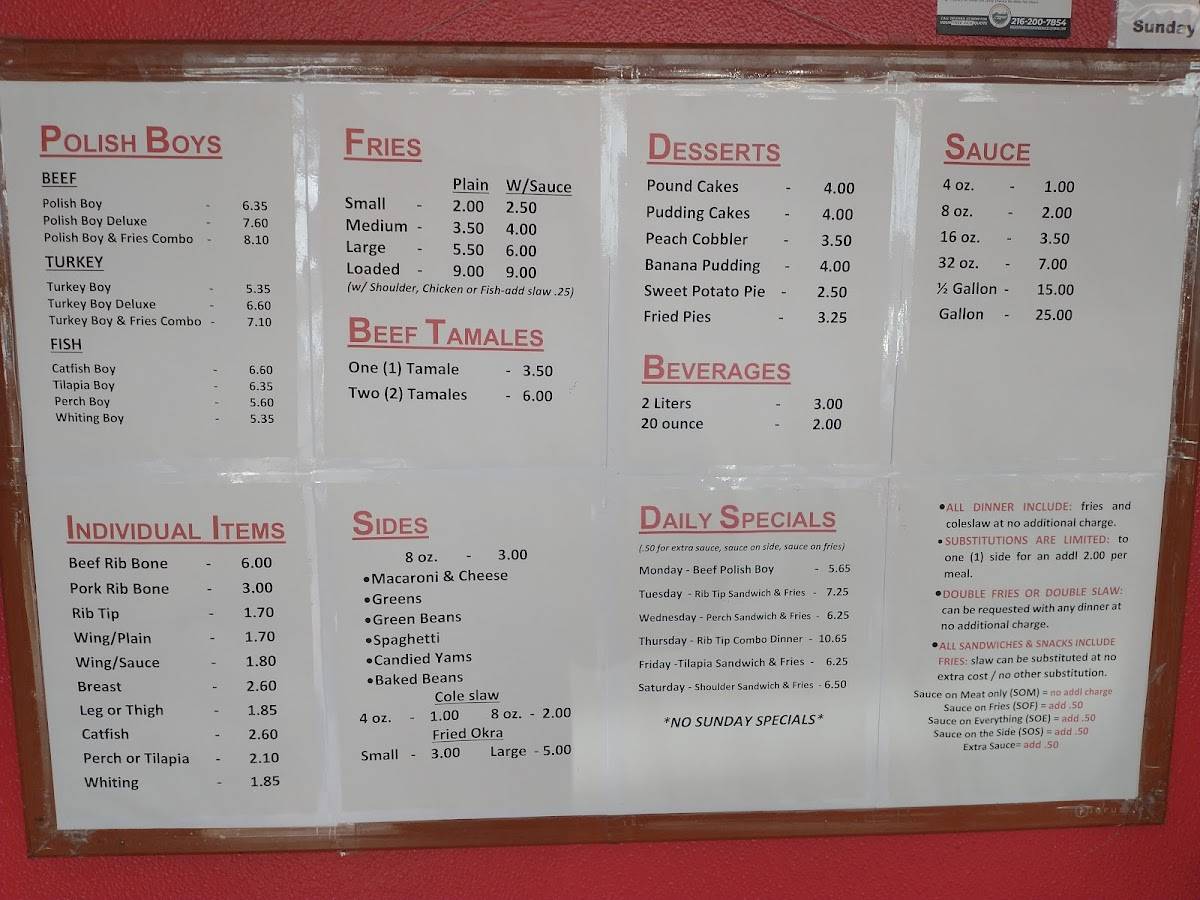 216-200-7854
Sunday
POLISH BOYS
BEEF
Polish Boy - 6.35
Polish Boy Deluxe - 7.60
Polish Boy & Fries Combo - 8.10
TURKEY
Turkey Boy - 5.35
Turkey Boy Deluxe - 6.60
Turkey Boy & Fries Combo - 7.10
FISH
Catfish Boy - 6.60
Tilapia Boy - 6.35
Perch Boy - 5.60
Whiting Boy - 5.35
FRIES
Plain W/Sauce
Small - 2.00 2.50
Medium - 3.50 4.00
Large - 5.50 6.00
Loaded - 9.00 9.00
(w/ Shoulder, Chicken or Fish-add slaw .25)
BEEF TAMALES
One (1) Tamale - 3.50
Two (2) Tamales - 6.00
DESSERTS
Pound Cakes - 4.00
Pudding Cakes - 4.00
Peach Cobbler - 3.50
Banana Pudding - 4.00
Sweet Potato Pie - 2.50
Fried Pies - 3.25
BEVERAGES
2 Liters - 3.00
20 ounce - 2.00
SAUCE
4 oz. - 1.00
8 oz. - 2.00
16 oz. - 3.50
32 oz. - 7.00
½ Gallon - 15.00
Gallon - 25.00
INDIVIDUAL ITEMS
Beef Rib Bone - 6.00
Pork Rib Bone - 3.00
Rib Tip - 1.70
Wing/Plain - 1.70
Wing/Sauce - 1.80
Breast - 2.60
Leg or Thigh - 1.85
Catfish - 2.60
Perch or Tilapia - 2.10
Whiting - 1.85
SIDES
8 oz. - 3.00
•Macaroni & Cheese
•Greens
•Green Beans
•Spaghetti
•Candied Yams
•Baked Beans
Cole slaw
4 oz. - 1.00 8 oz. - 2.00
Fried Okra
Small - 3.00 Large - 5.00
DAILY SPECIALS
(.50 for extra sauce, sauce on side, sauce on fries)
Monday - Beef Polish Boy - 5.65
Tuesday - Rib Tip Sandwich & Fries - 7.25
Wednesday - Perch Sandwich & Fries - 6.25
Thursday - Rib Tip Combo Dinner - 10.65
Friday -Tilapia Sandwich & Fries - 6.25
Saturday - Shoulder Sandwich & Fries - 6.50
*NO SUNDAY SPECIALS*
•ALL DINNER INCLUDE: fries and
coleslaw at no additional charge.
•SUBSTITUTIONS ARE LIMITED: to
one (1) side for an addl 2.00 per
meal.
•DOUBLE FRIES OR DOUBLE SLAW:
can be requested with any dinner at
no additional charge.
•ALL SANDWICHES & SNACKS INCLUDE
FRIES: slaw can be substituted at no
extra cost / no other substitution.
Sauce on Meat only (SOM) = no addl charge
Sauce on Fries (SOF) = add .50
Sauce on Everything (SOE) = add .50
Sauce on the Side (SOS) = add .50
Extra Sauce= add .50